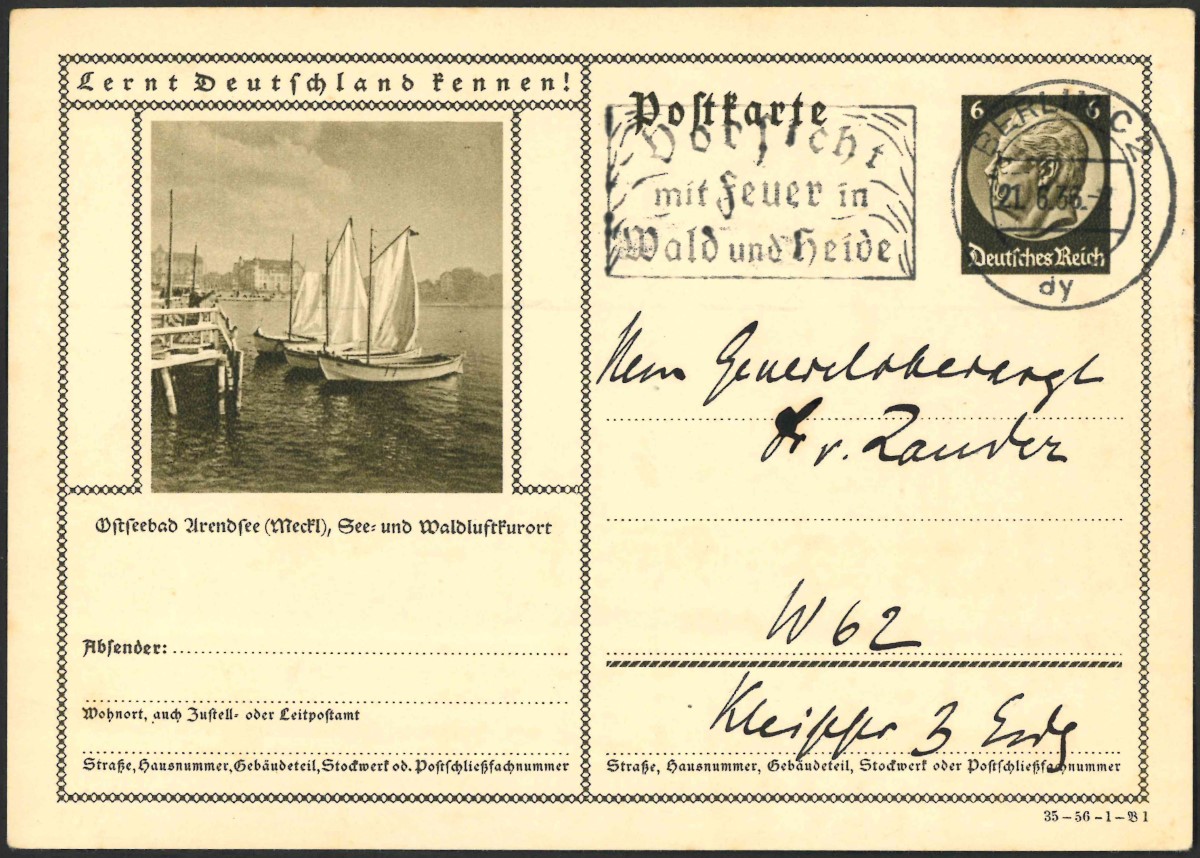 Lernt Deutschland kennen!
Ostseebad Arendsee (Meckl), See- und Waldluftkurort
Absender:
Wohnort, auch Zustell- oder Leitpostamt
Straße, Hausnummer, Gebäudeteil, Stockwerk od. Postschließfachnummer
Postkarte
Vorsicht
mit Feuer in
Wald und Heide
6 6
Deutsches Reich
BERLIN C2
21. 6.36.
dy
Herrn Generaloberarzt
Dr v. Zander
W 62
3
Straße, Hausnummer, Gebäudeteil, Stockwerk oder Postschließfachnummer
35-56-1-B1